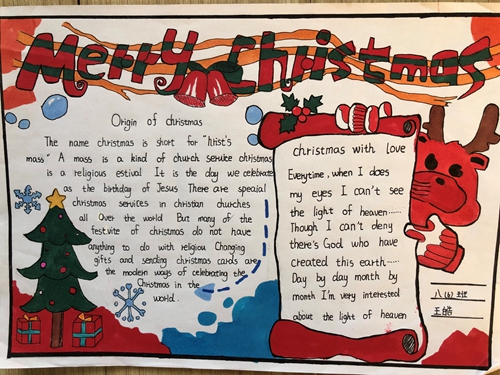 Merry Christmas
Origin of christmas
The name christmas is short for "hrist's
mass" A mass is a kind of church service christmas
is a religious estival It is the day we celebrate
as the birthday of Jesus There are special
christmas services in christian churches
all Over the world But many of the
festivite of christmas do not have
anything to do with religiou Changing
gifts and sending christmas cards are
the modern ways of celebrating the
Christmas in the
world.
christmas with love
Everytime, when I does
my eyes I can't see
the light of heaven......
Though I can't deny
there's God who have
created this earth......
Day by day month by
month I'm very interested
about the light of heaven
八(6)班
王皓